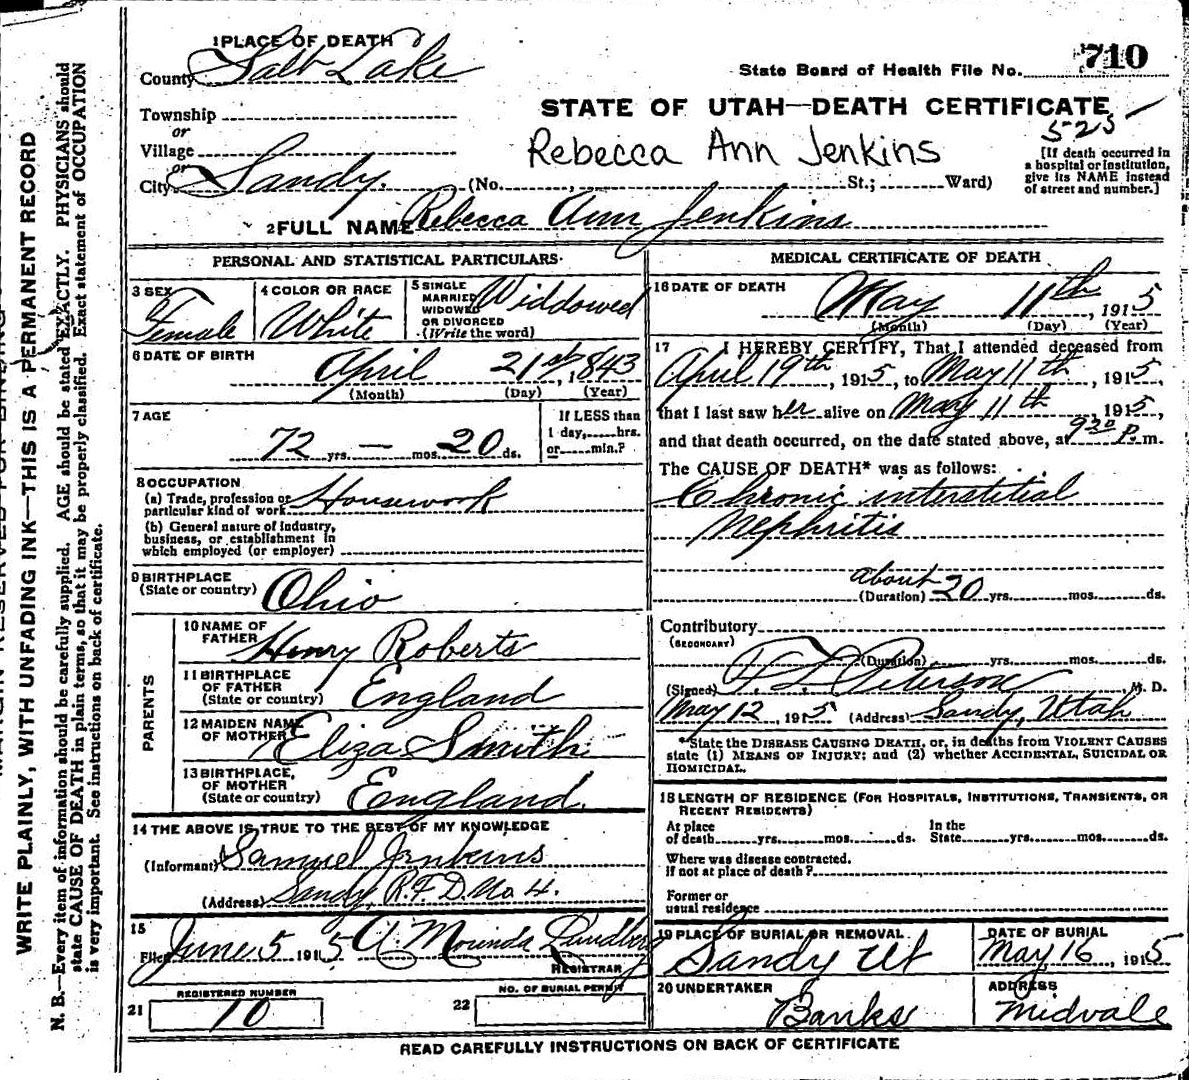 1 PLACE OF DEATH
County Salt Lake
State Board of Health File No. 710
Township
or
Village
or
City Sandy.
STATE OF UTAH—DEATH CERTIFICATE
525
Rebecca Ann Jenkins
(No. , St.; Ward)
[If death occurred in
a hospital or institution,
give its NAME instead
of street and number.]
2 FULL NAME Rebecca Ann Jenkins
PERSONAL AND STATISTICAL PARTICULARS
3 SEX
Female
4 COLOR OR RACE
White
5 SINGLE
MARRIED
WIDOWED
OR DIVORCED
(Write the word)
Widdowed
6 DATE OF BIRTH
April 21st, 1843
(Month) (Day) (Year)
7 AGE
72 yrs. — mos. 20 ds.
If LESS than
1 day, hrs.
or min.?
8 OCCUPATION
(a) Trade, profession or
particular kind of work Housework
(b) General nature of industry,
business, or establishment in
which employed (or employer)
9 BIRTHPLACE
(State or country) Ohio
PARENTS
10 NAME OF
FATHER Henry Roberts
11 BIRTHPLACE
OF FATHER
(State or country) England
12 MAIDEN NAME
OF MOTHER Eliza Smith
13 BIRTHPLACE,
OF MOTHER
(State or country) England.
14 THE ABOVE IS TRUE TO THE BEST OF MY KNOWLEDGE
(Informant) Samuel Jenkins
(Address) Sandy, R.F.D. No 4.
15
Filed June 5 1915 A. Mounda Lundberg
REGISTRAR
REGISTERED NUMBER
21 10
NO. OF BURIAL PERMIT
22
MEDICAL CERTIFICATE OF DEATH
16 DATE OF DEATH
May 11th, 1915
(Month) (Day) (Year)
17 I HEREBY CERTIFY, That I attended deceased from
April 19th, 1915, to May 11th, 1915,
that I last saw her alive on May 11th 1915,
and that death occurred, on the date stated above, at 9 30 P. m.
The CAUSE OF DEATH* was as follows:
Chronic interstitial
Nephritis
about
(Duration) 20 yrs. mos. ds.
Contributory
(SECONDARY)
(Duration) yrs. mos. ds.
(Signed) Peterson, M. D.
May 12, 1915 (Address) Sandy, Utah
*State the DISEASE CAUSING DEATH, or, in deaths from VIOLENT CAUSES
state (1) MEANS OF INJURY; and (2) whether ACCIDENTAL, SUICIDAL OR
HOMICIDAL.
18 LENGTH OF RESIDENCE (FOR HOSPITALS, INSTITUTIONS, TRANSIENTS, OR
RECENT RESIDENTS)
At place
of death yrs. mos. ds.
In the
State yrs. mos. ds.
Where was disease contracted.
If not at place of death?
Former or
usual residence
19 PLACE OF BURIAL OR REMOVAL
Sandy Ut
DATE OF BURIAL
May 16, 1915
20 UNDERTAKER
Banks
ADDRESS
Midvale
READ CAREFULLY INSTRUCTIONS ON BACK OF CERTIFICATE
WRITE PLAINLY, WITH UNFADING INK—THIS IS A PERMANENT RECORD
N. B.—Every item of information should be carefully supplied. AGE should be stated EXACTLY. PHYSICIANS should
state CAUSE OF DEATH in plain terms, so that it may be properly classified. Exact statement of OCCUPATION
is very important. See instructions on back of certificate.